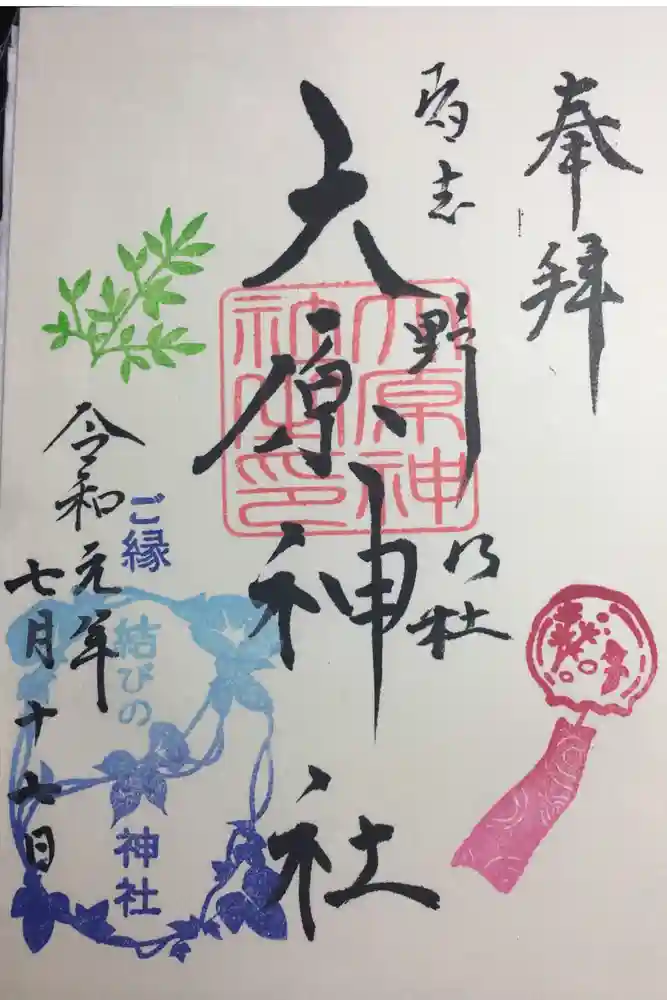 奉拝
習志野乃社
大原神社
大原神社之印
令和元年
七月十七日
ご縁
結びの
神社